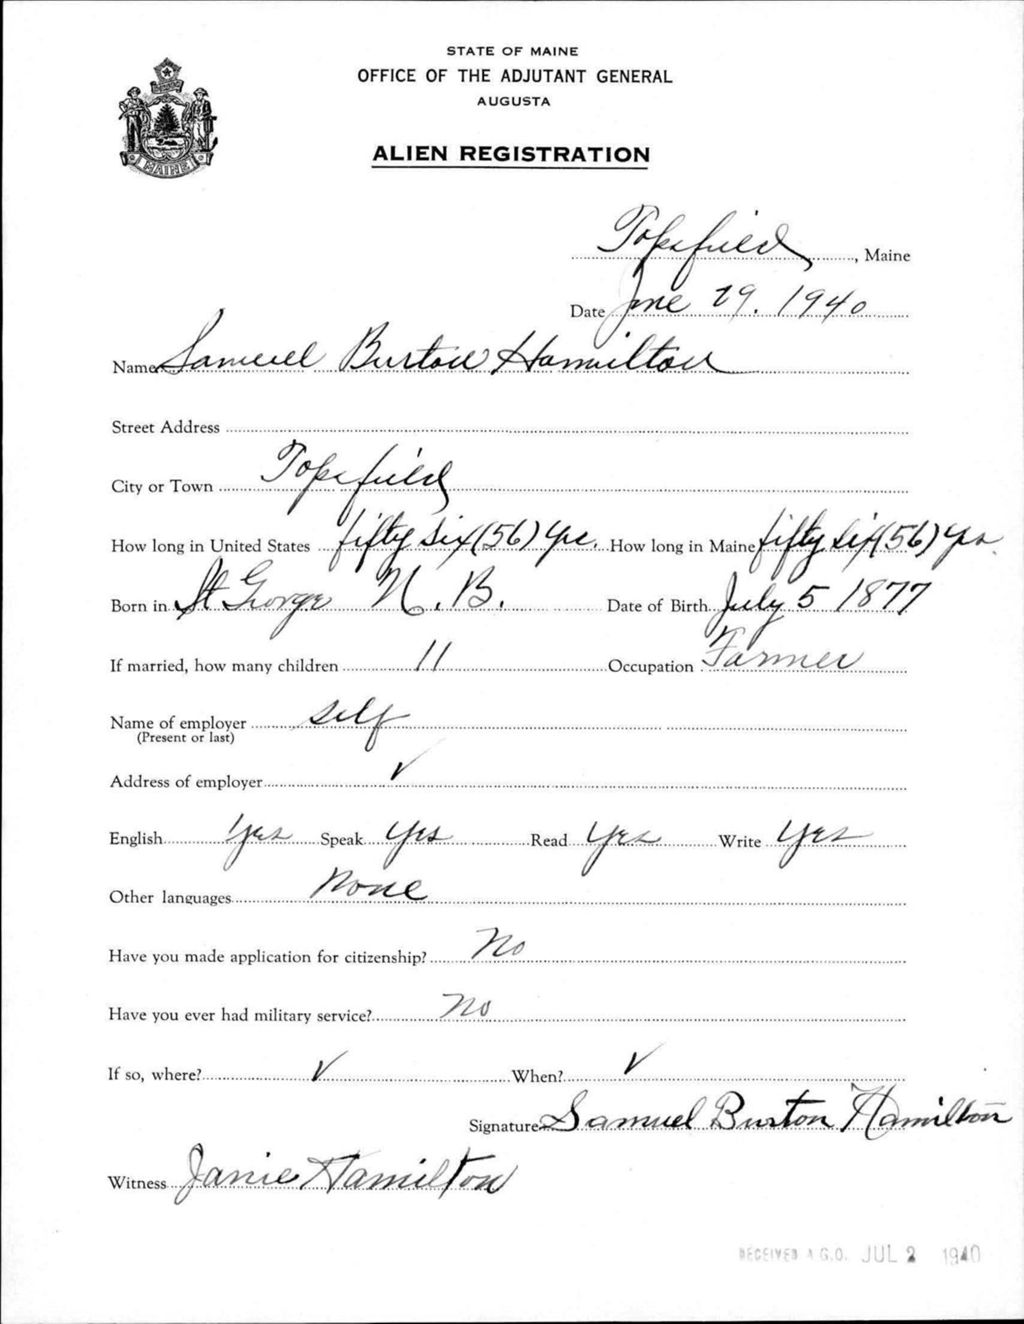 STATE OF MAINE
OFFICE OF THE ADJUTANT GENERAL
AUGUSTA
MAINE
ALIEN REGISTRATION
Topsfield, Maine
Date June 29. 1940
Name Samuel Burton Hamilton
Street Address
City or Town Topsfield
How long in United States fifty six (56) yrs. How long in Maine fifty six (56) yrs
Born in St George N. B. Date of Birth July 5 1877
If married, how many children 11 Occupation Farmer
Name of employer self
(Present or last)
Address of employer ✓
English Yes Speak Yes Read Yes Write Yes
Other languages None
Have you made application for citizenship? No
Have you ever had military service? No
If so, where? ✓ When? ✓
Signature Samuel Burton Hamilton
Witness Janie Hamilton
RECEIVED A.G.O. JUL 2 1940